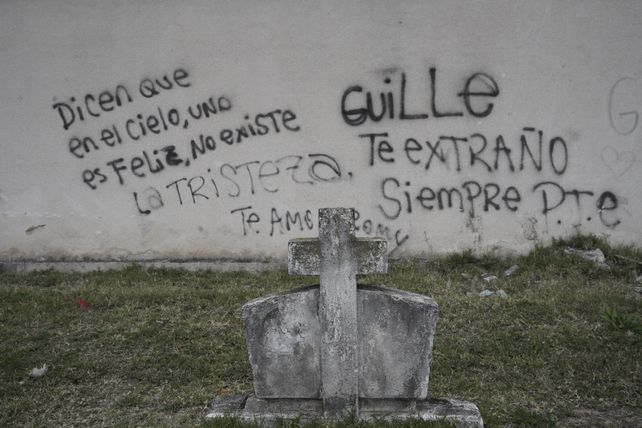 Dicen que
en el cielo, uno
es Feliz, No existe
la TRISTEZA.
Te AMO Romy
GUILLe
Te eXTRAÑO
Siempre P.T.e
G